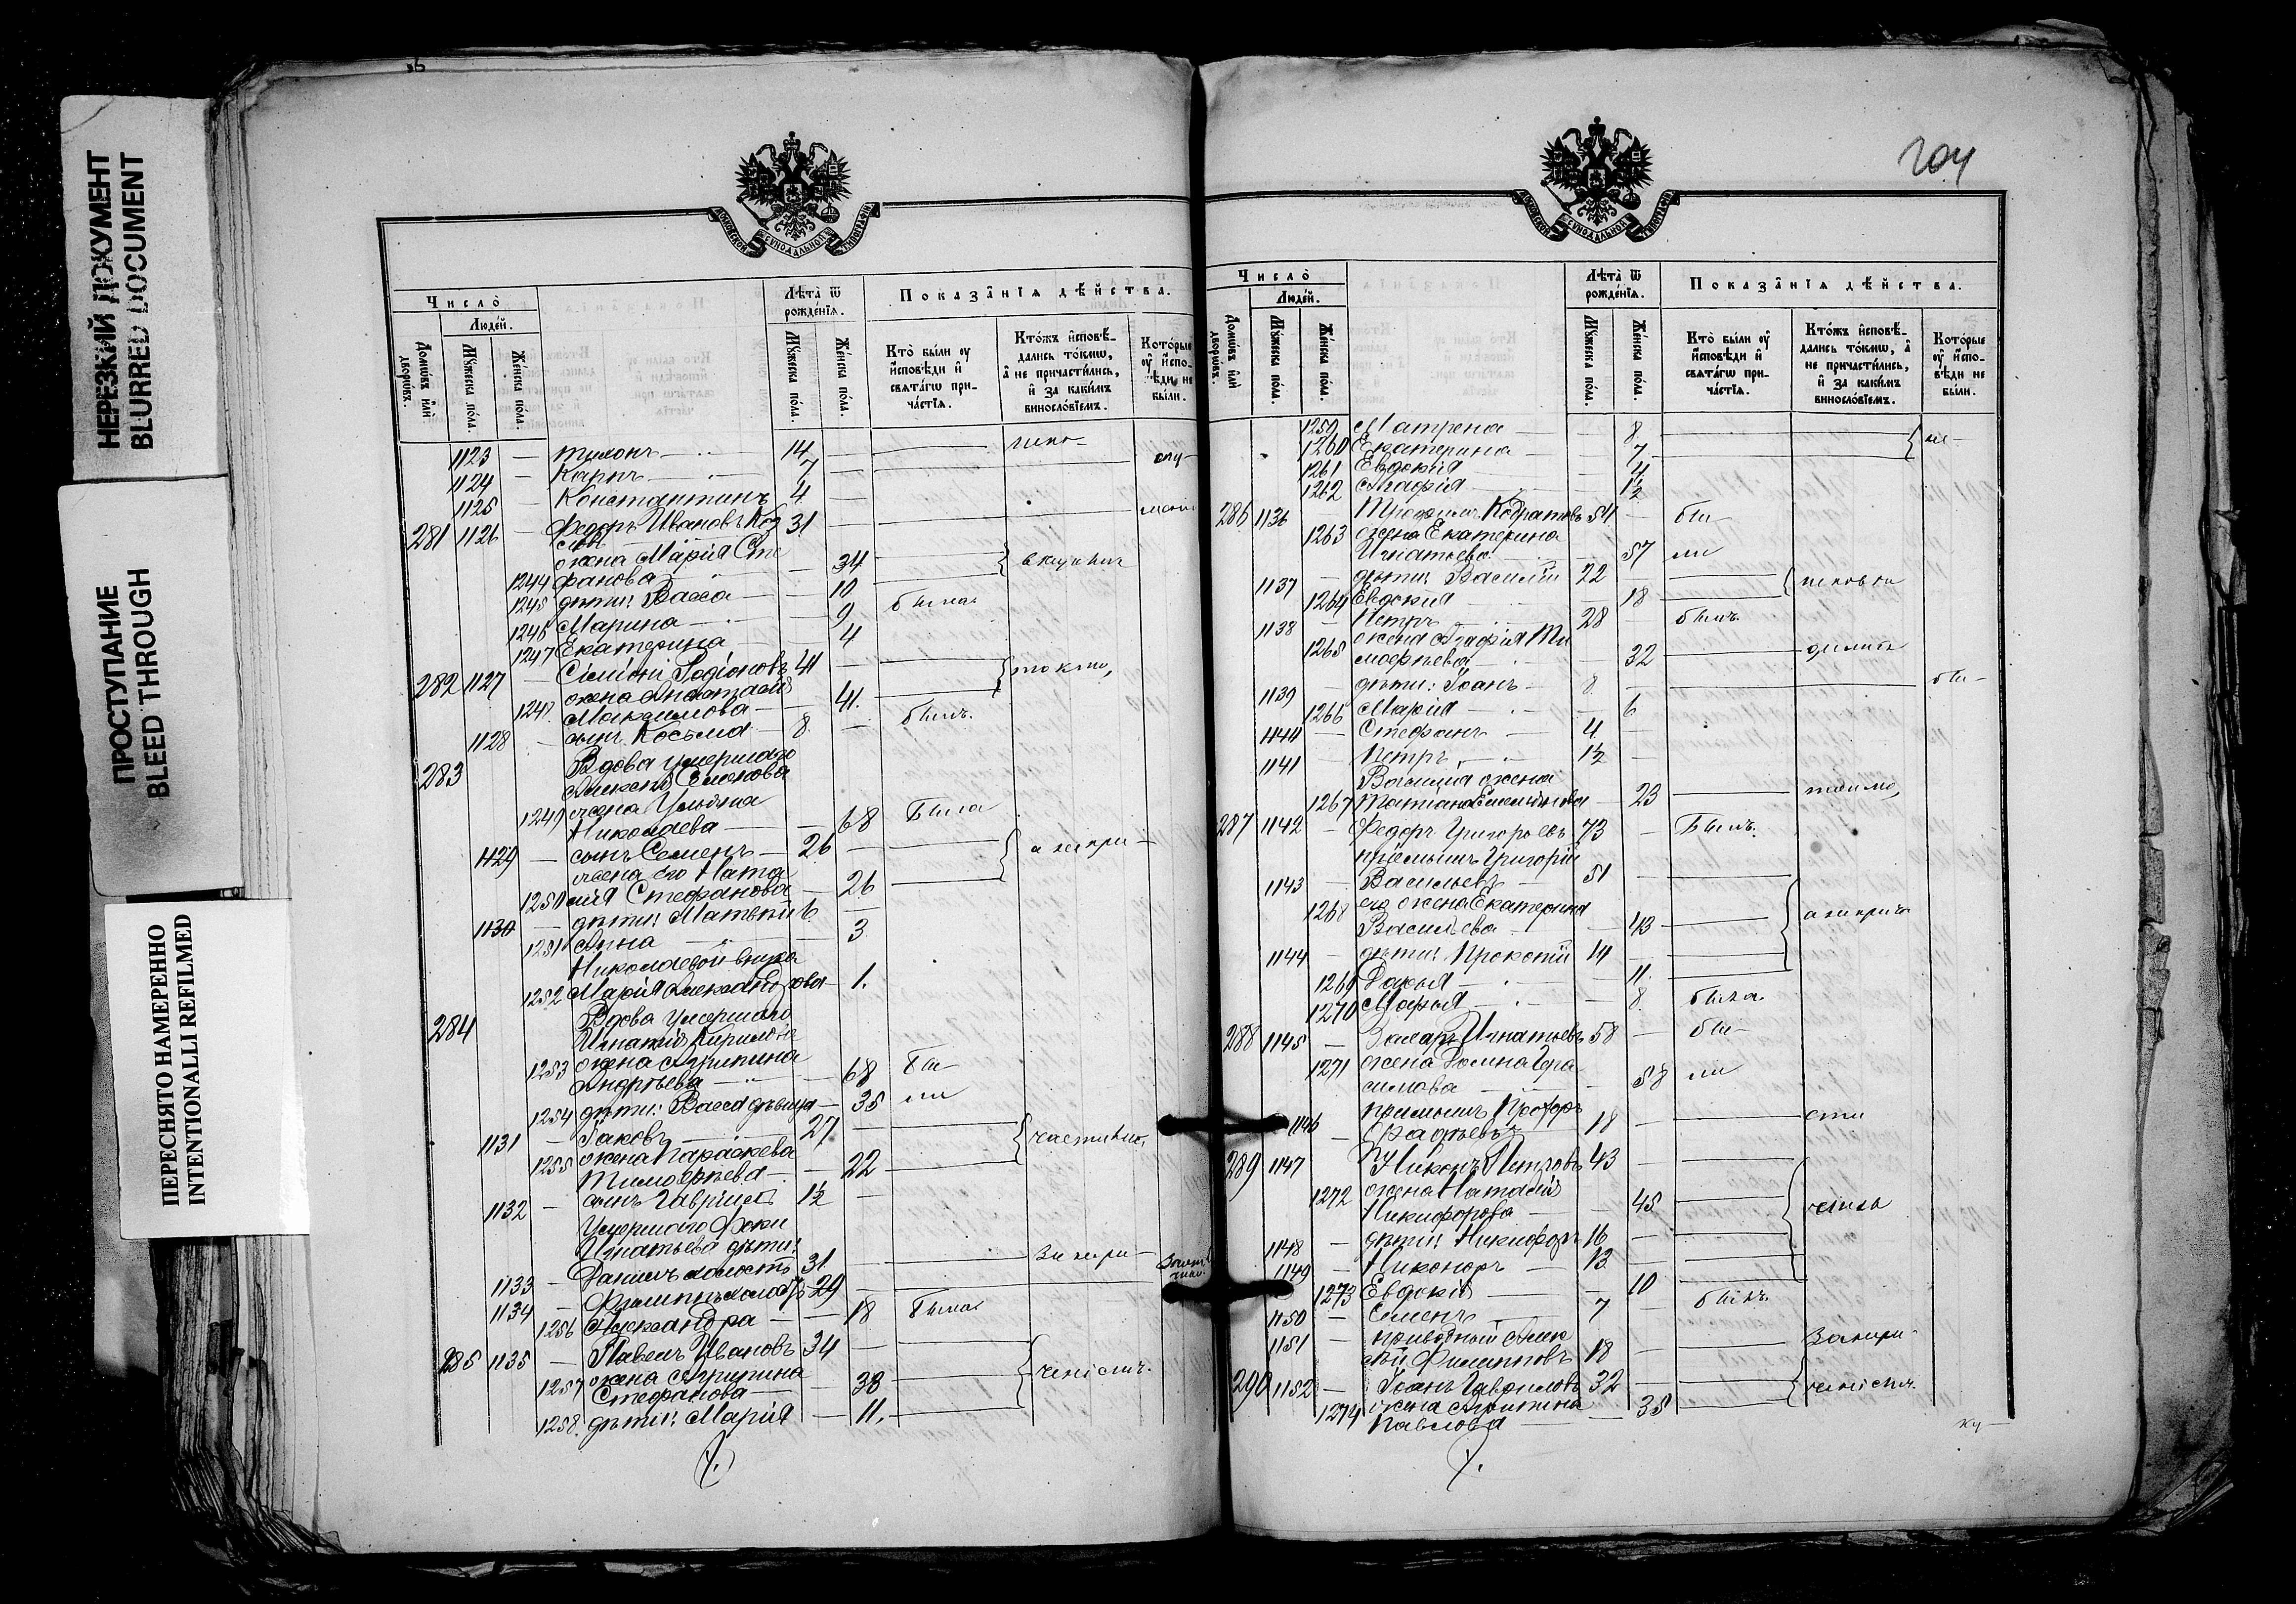 НЕРЕЗКИЙ ДОКУМЕНТ
BLURRED DOCUMENT
ПРОСТУПАНИЕ
BLEED THROUGH
ПЕРЕСНЯТО НАМЕРЕННО
INTENTIONALLI REFILMED
МОСКОВСКОЙ СѴНОДАЛЬНОЙ ТИПОГРАФІИ
Число̀
Людей.
Домѡвъ или дворѡвъ.
Мꙋжеска пола.
Женска пола.
Лѣта̀ ѿ рожденїѧ.
Мꙋжеска пола.
Женска пола.
Показанїѧ дѣйства.
Кто̀ были ᲂу҆ исповѣди и свѧтагѡ причастїѧ.
Ктожъ исповѣдались токмѡ, а не причастились, и за какимъ винословїемъ.
Которые ᲂу҆ исповѣди не были.
1123 — Тихонъ — 14
1124 — Карпъ — 7
1125 — Константинъ 4
281 1126 — Федоръ Ивановъ Коз 31
жена Марія Сте
1244 фанова — 34
1245 дѣти: Васса — 10
1246 Марина — 9 была
1247 Екатерина 4
282 1127 — Родіоновъ 41 токмо,
жена Анастасія
Максимова — 41.
1128 — сынъ Косьма 8 былъ.
283 Вдова умершаго
1249 жена Ульяна
Николаева — 68 Была
1129 — сынъ Семенъ — 26 а непри—
жена его Ната
1250 лія Стефанова — 26
1130 — дѣти: 6
1251 Анна — 3
Николаевой внука
1252 Марія Александрова — 1.
284 Вдова умершаго
Игнатія Кирилова
1253 жена Агрипина
Андреева — 68 Бы—
1254 дѣти: Васса дѣвица — 35 ли
1131 — Іаковъ — 27 частились,
1255 жена Параскева
Тимофеева — 22
1132 — сынъ Гавріилъ 1½
Умершаго Фоки
Игнатьева дѣти:
1133 — Даніилъ холостъ 31 За непри—
1134 — Филиппъ холостъ 29
1256 Александра — 18 Была
285 1135 — Павелъ Ивановъ 34
1257 жена Агрипина
Стефанова — 38 ченіемъ.
1258. дѣти: Марія — 11.
204
МОСКОВСКОЙ СѴНОДАЛЬНОЙ ТИПОГРАФІИ
Число̀
Людей.
Домѡвъ или дворѡвъ.
Мꙋжеска пола.
Женска пола.
Лѣта̀ ѿ рожденїѧ.
Мꙋжеска пола.
Женска пола.
Показанїѧ дѣйства.
Кто̀ были ᲂу҆ исповѣди и свѧтагѡ причастїѧ.
Ктожъ исповѣдались токмѡ, а не причастились, и за какимъ винословїемъ.
Которые ᲂу҆ исповѣди не были.
1259 Матрена — 8
1260 Екатерина — 7 не—
1261 Евдокія 4
1262 Агафія 1½
286 1136 Трофимъ Кодратовъ 54 — бы—
1263 жена Екатерина
Игнатьева — 57 ли
1137 — дѣти: Василій 22
1264 Евдокія — 18
1138 — Петръ — 28 — былъ.
1265 жена Агафія Ти
мофеева — 32
1139 — дѣти: Іоанъ — 8 бы—
1266 Марія — 6
1140 — Стефанъ — 4
1141 — Петръ — 1½
Василія жена
1267 Татіана Емельянова — 23
287 1142 — Федоръ Григорьевъ 73 — Былъ.
пріемышъ Григорій
1143 — Васильевъ — 51
1268 его жена Екатерина
Васильева — 43
1144 — дѣти: Прокопій 14
1269 Дарья — 11.
1270 Марья — 8. была.
288 1145 — Захаръ Игнатьевъ 58 — бы—
1271 жена Домна Гера
симова — 58 ли
1146 пріемышъ Прохоръ
— 18
289 1147 Никонъ Петровъ 43
1272 жена Наталія
Никифорова — 45
1148 — дѣти: Никифоръ 16
1149 — Никоноръ — 13
1273 Евдокія — 10
1150 — Семенъ 7 былъ.
1151 — приводный Алек
сѣй Филипповъ 18 — За непри—
290 1152 — Іоанъ Гавриловъ 32
1274 жена Агрипина
Павлова — 35 ченіемъ.